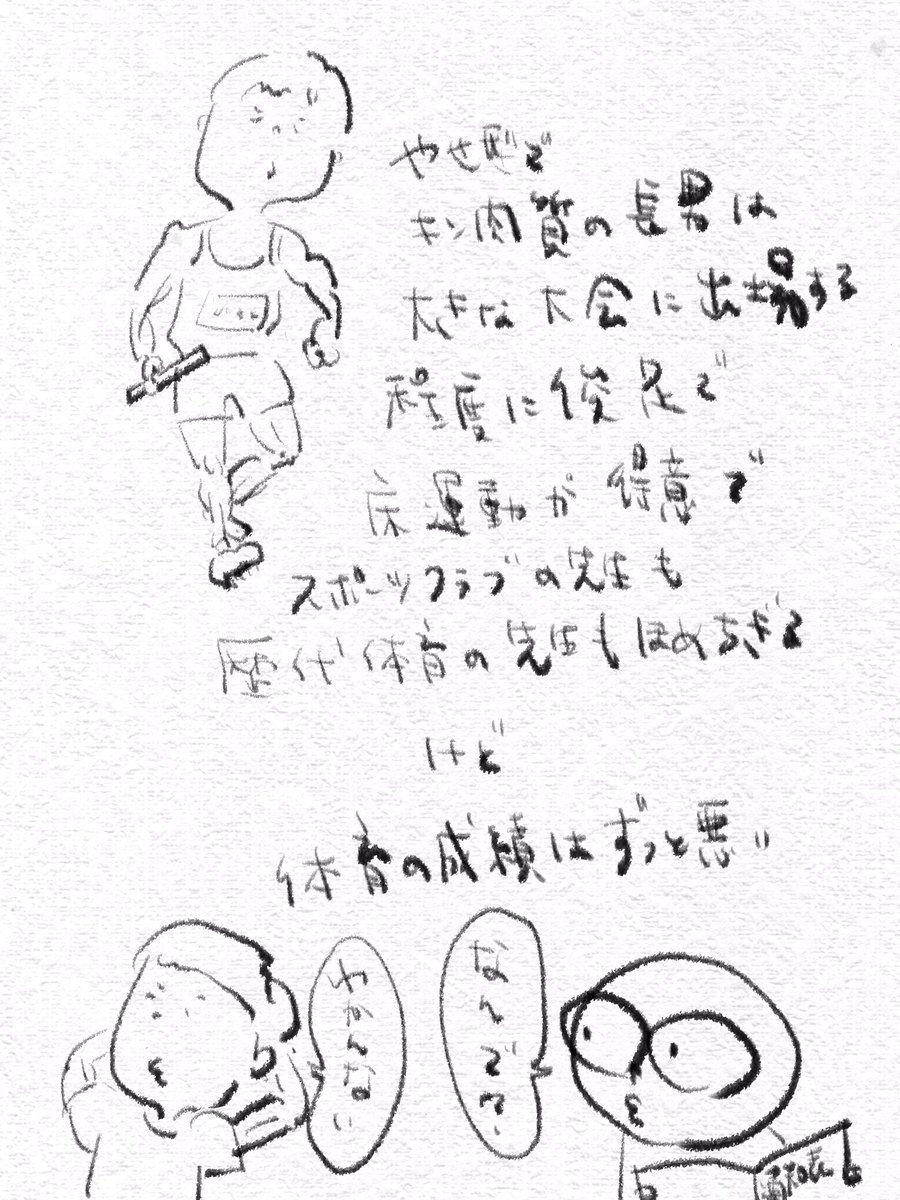 やせ型で
キン肉質の長男は
大きな大会に出場する
程度に俊足で
床運動が得意で
スポーツクラブの先生も
歴代体育の先生もほめちぎる
けど
体育の成績はずっと悪い
なんでさ
わかんない